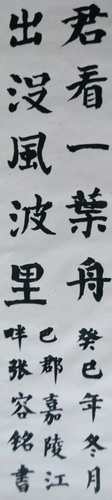 君看一葉舟
出没風波里
癸巳年冬月
巴郡嘉陵江
畔張容銘書